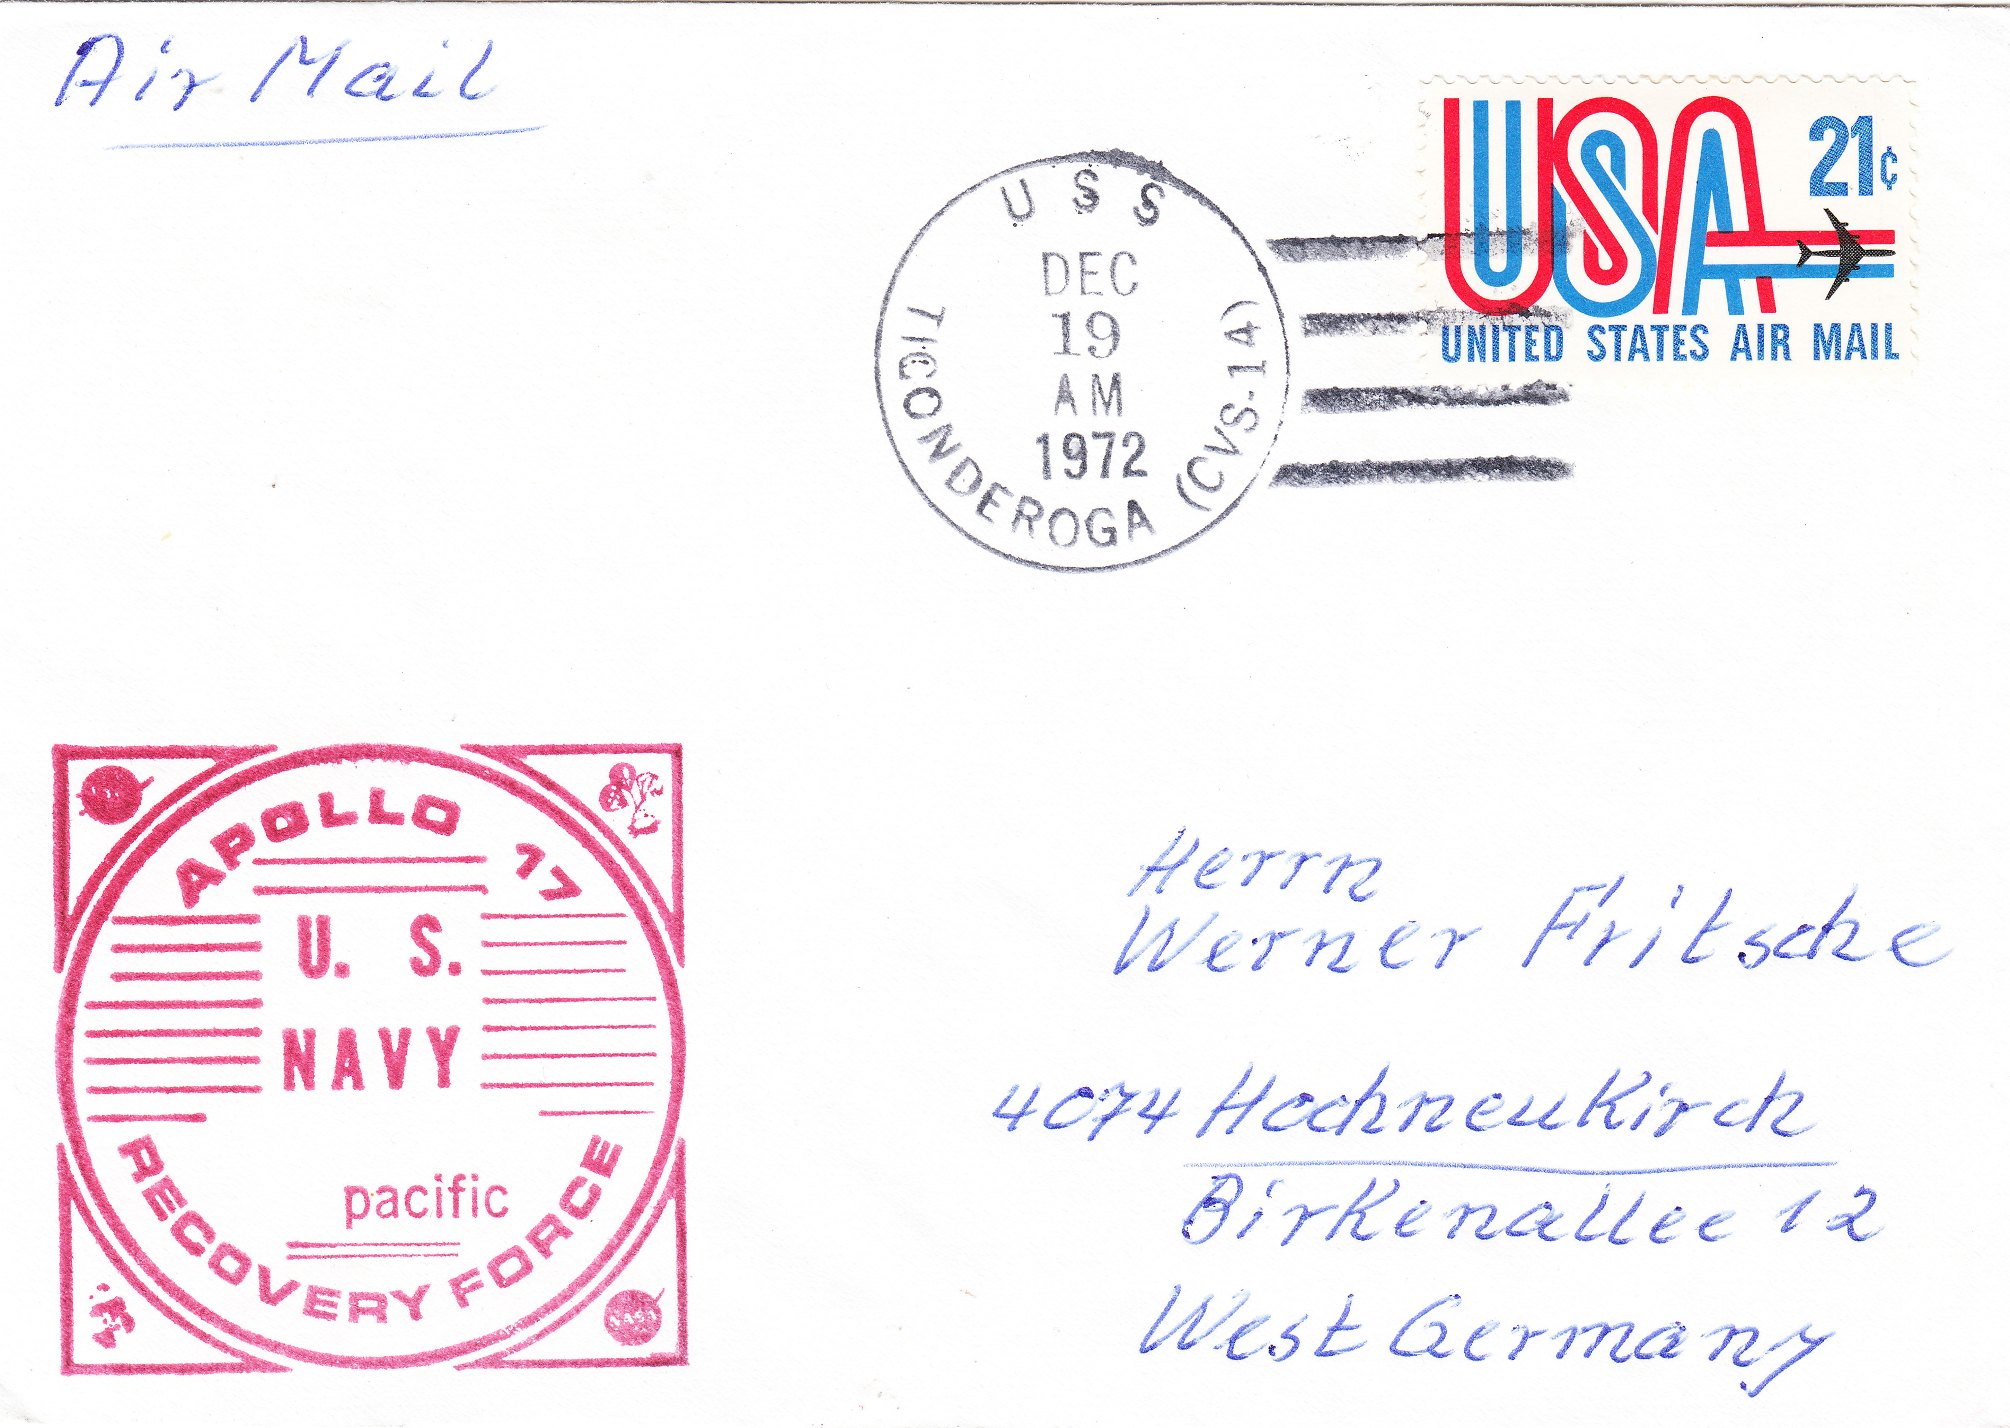 Air Mail
USA
21¢
UNITED STATES AIR MAIL
USS
DEC
19
AM
1972
TICONDEROGA (CVS-14)
APOLLO 17
U. S.
NAVY
pacific
RECOVERY FORCE
NASA
Herrn
Werner Fritsche
4074 Hochneukirch
Birkenallee 12
West Germany